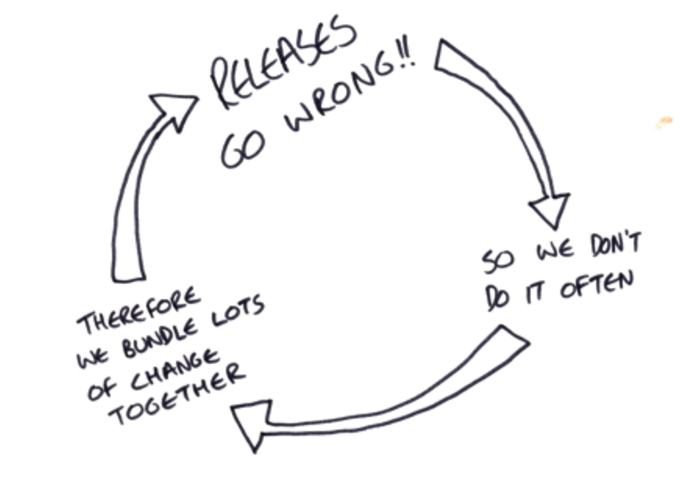 RELEASES
GO WRONG!!
SO WE DON'T
DO IT OFTEN
THEREFORE
WE BUNDLE LOTS
OF CHANGE
TOGETHER